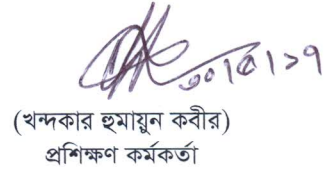 ৩০|৫|১৭
(খন্দকার হুমায়ুন কবীর)
প্রশিক্ষণ কর্মকর্তা